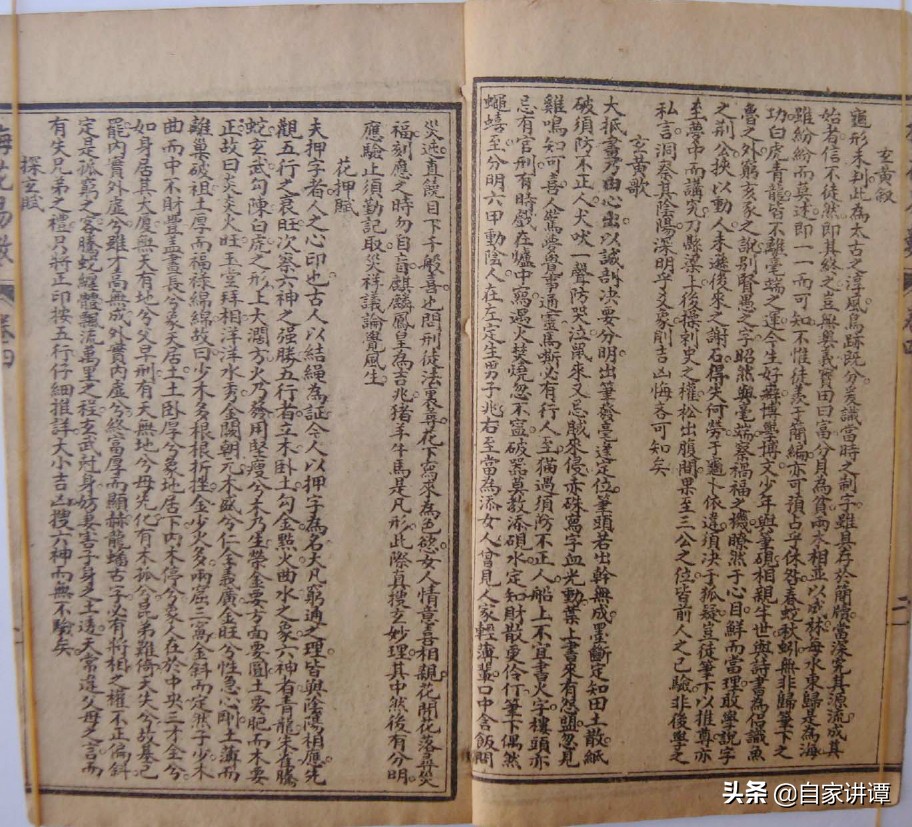 玄黃敘
龜形未判此為太古之淳風鳥跡既分爰識當時之制字雖具存於簡牘當深究其源流成其
始者信不徒然即其終之豈無奧義寶田曰富分貝為貧兩木相並以成林每水東歸是為海
雖紛紛而莫逑即一一而可知不惟徒羨于簡編亦可預占乎休咎春蛇秋蚓無非歸筆下之
功白虎青龍皆不離毫端之運今生好癖博學博文少年與筆硯相親半世與詩書為侶識魚
魯之外窮亥豕之說別賢愚之字昭然與毫端察禍福之機瞭然于心目鮮而當理敢學說字
之荆公挾以動人未遜後來之謝石得失何勞于龜卜依違須決于狐疑豈徒筆下以推尊亦
至夢中而講究刀懸梁上後操刺史之權松出腹間果至三公之位皆前人之已驗非後學之
私言洞察其陰陽深明乎爻象則吉凶悔吝可知矣
玄黃歌
大抵畫乃由心出以誠訪決要分明出筆發毫逢定位筆頭若出幹無成墨斷定知田土散紙
破須防不正人犬吠一聲防哭泣鼠來又忌賊來侵赤硃寫字血光動葉上書來有怨盟忽見
雞鳴知可喜人啼
忌有官刑有時戲在爐中寫遇火焚燒忽不寧破器莫教添硯水定知財散更伶仃筆下偶然
蠅蟢至分明六甲動陰人在左定生男子兆右至當為添女人曾見人家輕薄輩口中含飯問
災迍直饒目下千般喜也問刑徒法裏尋花下寫來為色慾女人情意喜相親花開花落尋災
福刻應之時勿自盲麒麟鳳皇為吉兆豬羊牛馬是凡形此際真搜玄妙理其中然後有分明
應驗止須勤記取災祥議論覺風生
花押賦
夫押字者人之心印也古人以結繩為証今人以押字為名大凡窮通之理皆與陰陽相應先
觀五行之衰旺次察六神之强勝五行者立木卧土勾金點火曲水之象六神者青龍朱雀騰
蛇玄武勾陳白虎之形上大闊方火乃發用堅瘦兮木乃生榮金要方面要圓土要肥而木要
正故曰炎炎火旺玉堂拜相洋洋水秀金闕朝元木盛兮仁全義廣金旺兮性急心剛土薄而
離巢破祖土厚而福祿綿綿故曰少木多根根折挫金少火多兩窟三窩金斜而定然子少木
曲而中不財豐盖畫長兮象天居土土卧厚兮象地居下內木停兮象人在於中央三才全兮
如身居其大厦無天有地兮父早刑有天無地兮母先化有木孤兮吕弟難倚天失兮故基已
罷內實外虛兮雖才高無成外實內虛兮終富厚而顯赫龍蟠古字必有將相之權不正偏斜
定是孤窮之容騰蛇纏體飄流萬里之程玄武尅身妨妻害子身之土透天常違父母之言而
有失兄弟之禮只將正印按五行仔細推詳大小吉凶搜六神而無不驗矣
探玄賦
卷四
頭条 @自家讲谭